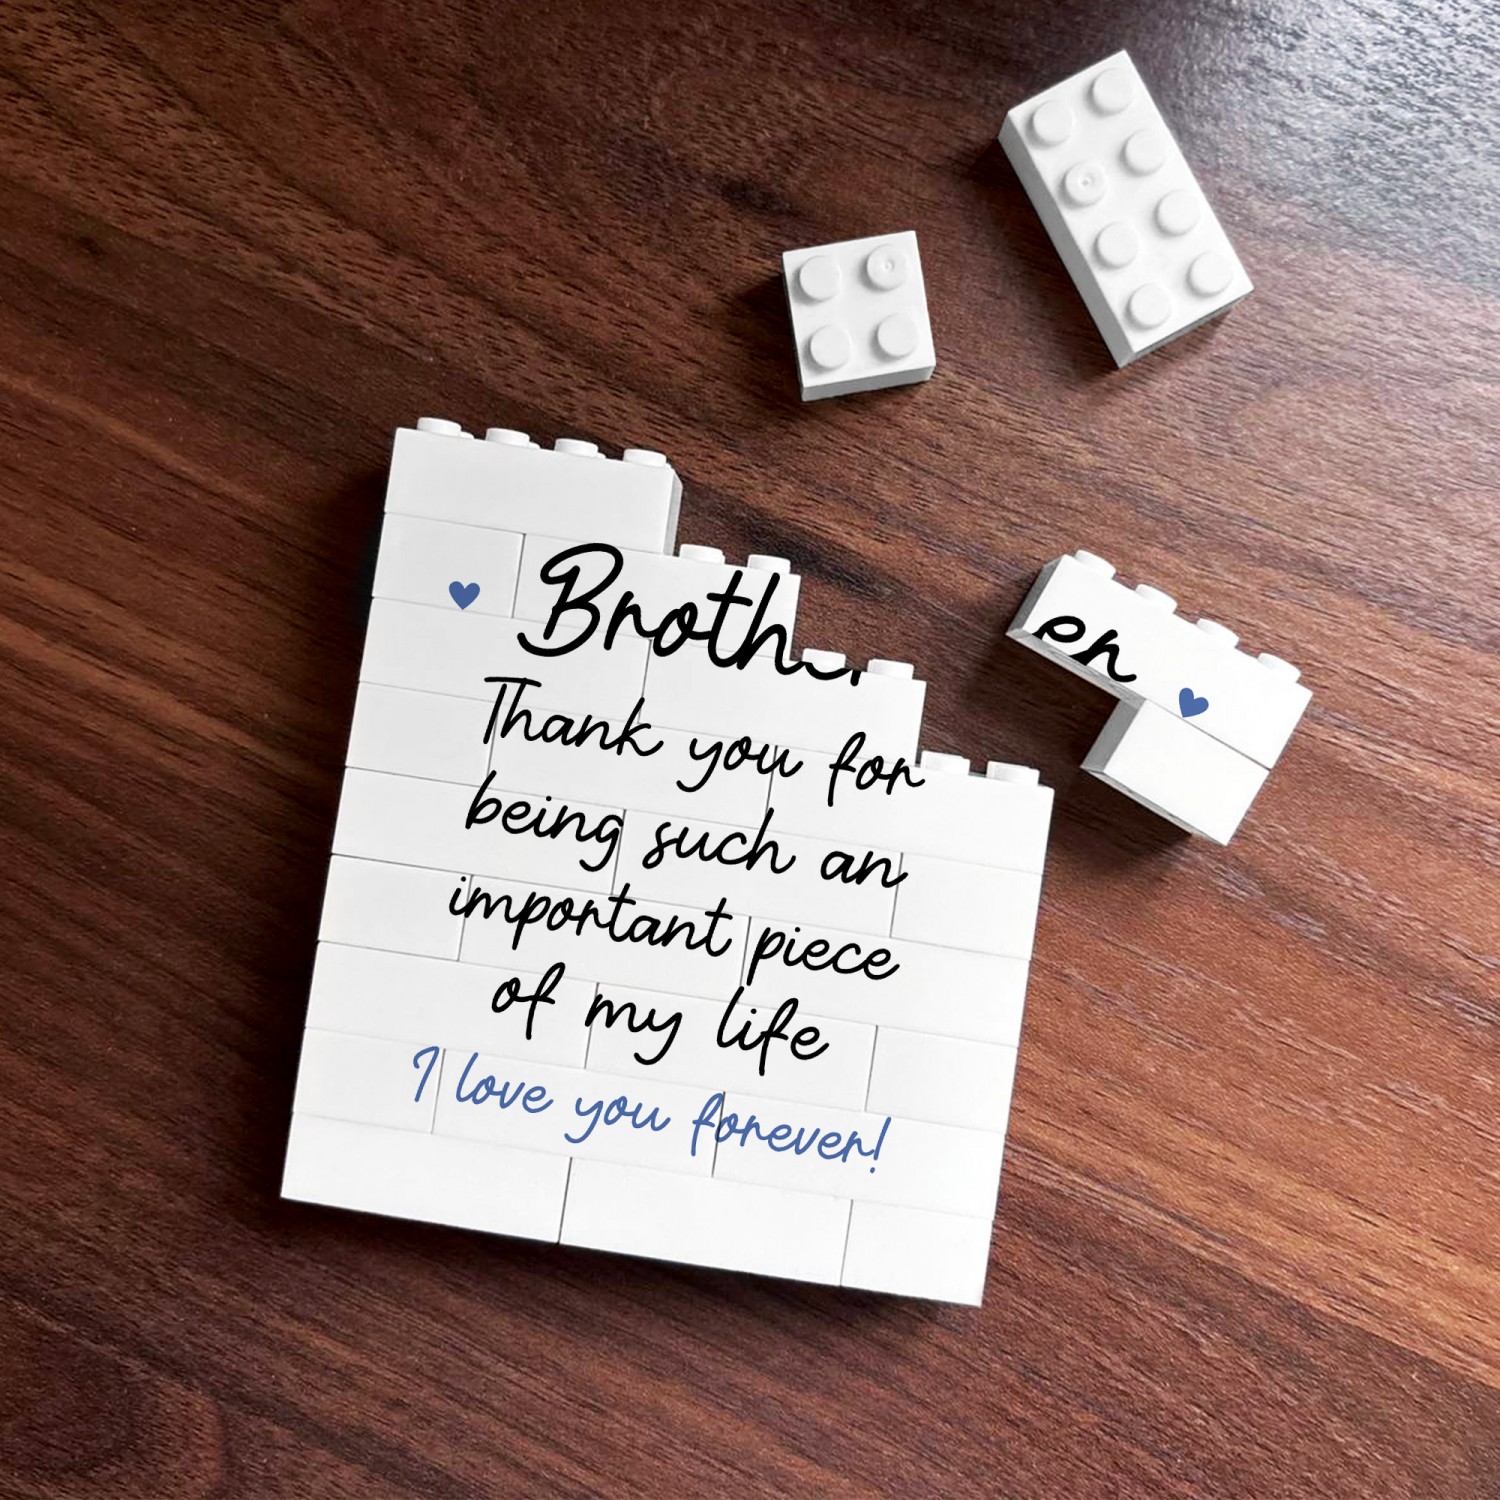 Brother
Thank you for
being such an
important piece
of my life
I love you forever!